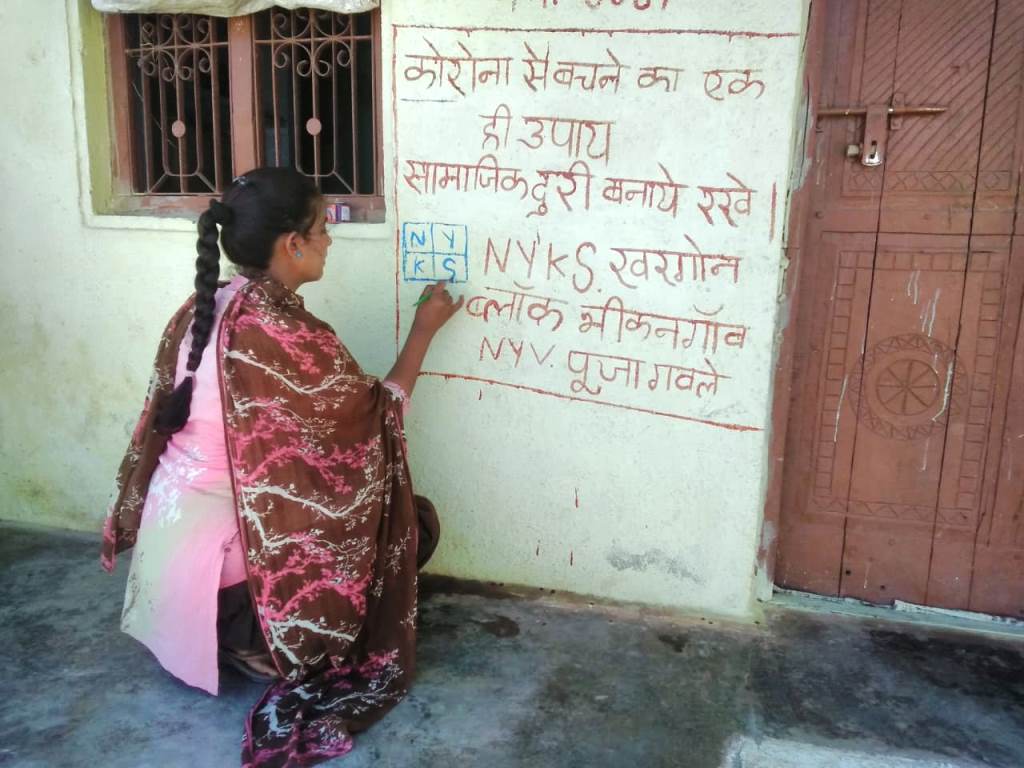 कोरोना से बचने का एक
ही उपाय
सामाजिक दुरी बनाये रखे |
N Y
K S
NYKS. खरगोन
ब्लॉक भीकनगाँव
NYV. पूजा गवले